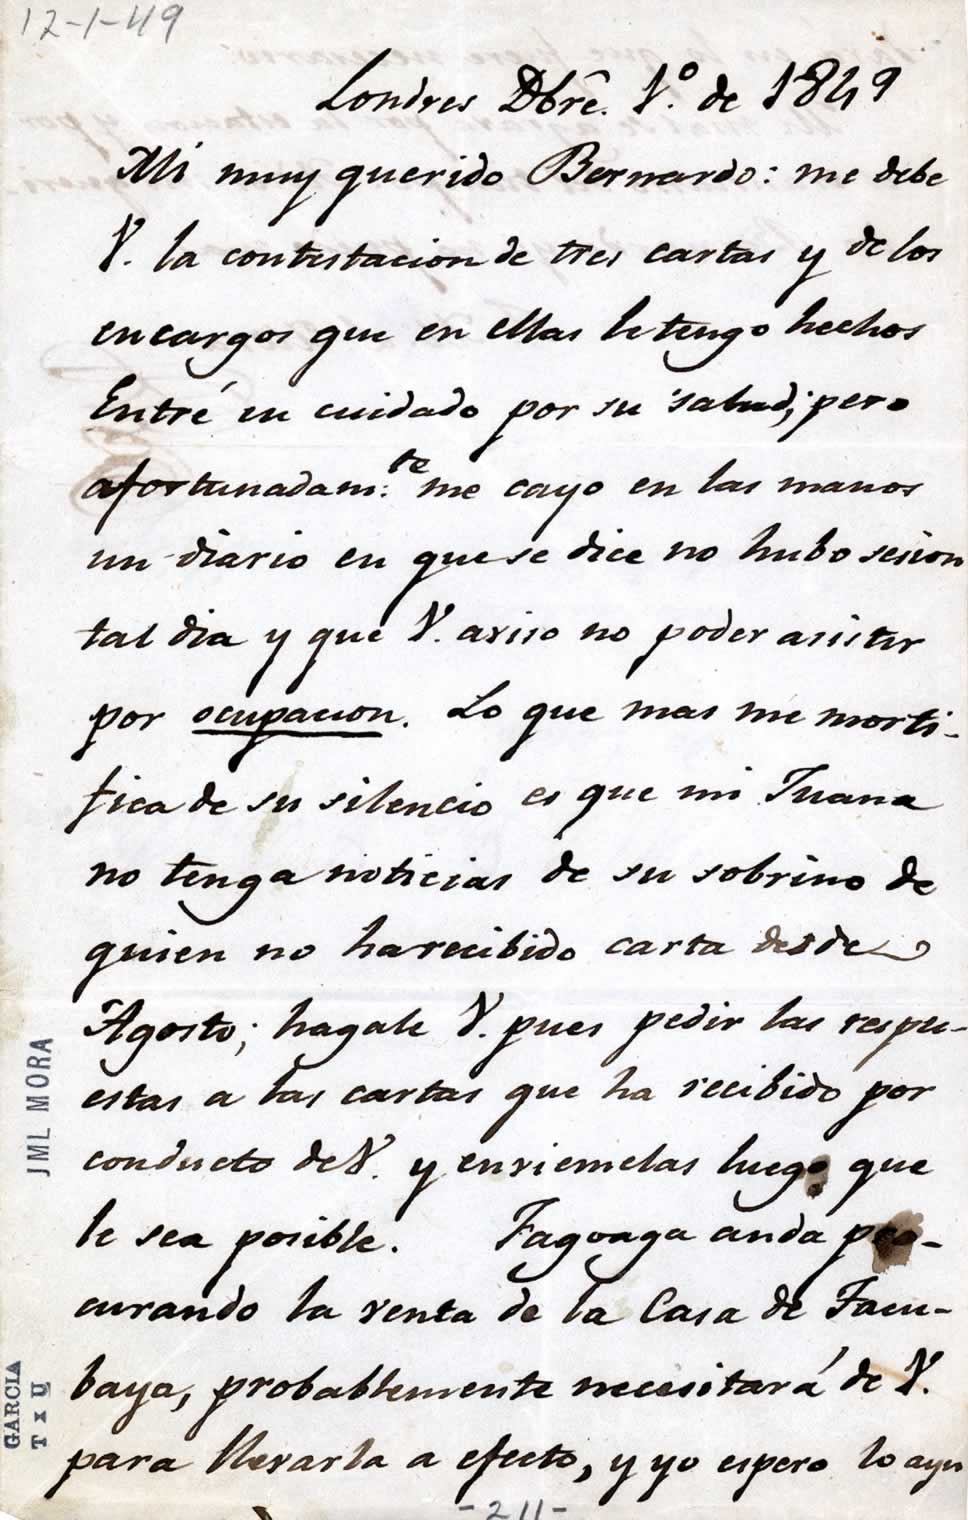 12-1-49
Londres Dbrē. 1º. de 1849
Mi muy querido Bernardo: me debe
V. la contestacion de tres cartas y de los
encargos que en ellas le tengo hechos
Entré en cuidado por su salud; pero
afortunadam:te me cayo en las manos
un diario en que se dice no hubo sesion
tal dia y que V. aviso no poder asistir
por ocupacion. Lo que mas me morti-
fica de su silencio es que mi Juana
no tenga noticias de su sobrino de
quien no ha recibido carta desde
Agosto; hagale V. pues pedir las respu-
estas a las cartas que ha recibido por
conducto de V. y enviemelas luego que
le sea posible. Fagoaga anda pro-
curando la venta de la Casa de Tacu-
baya, probablemente necesitará de V.
para llevarla a efecto, y yo espero lo ayu
-211-
JML MORA
GARCIA
T x U